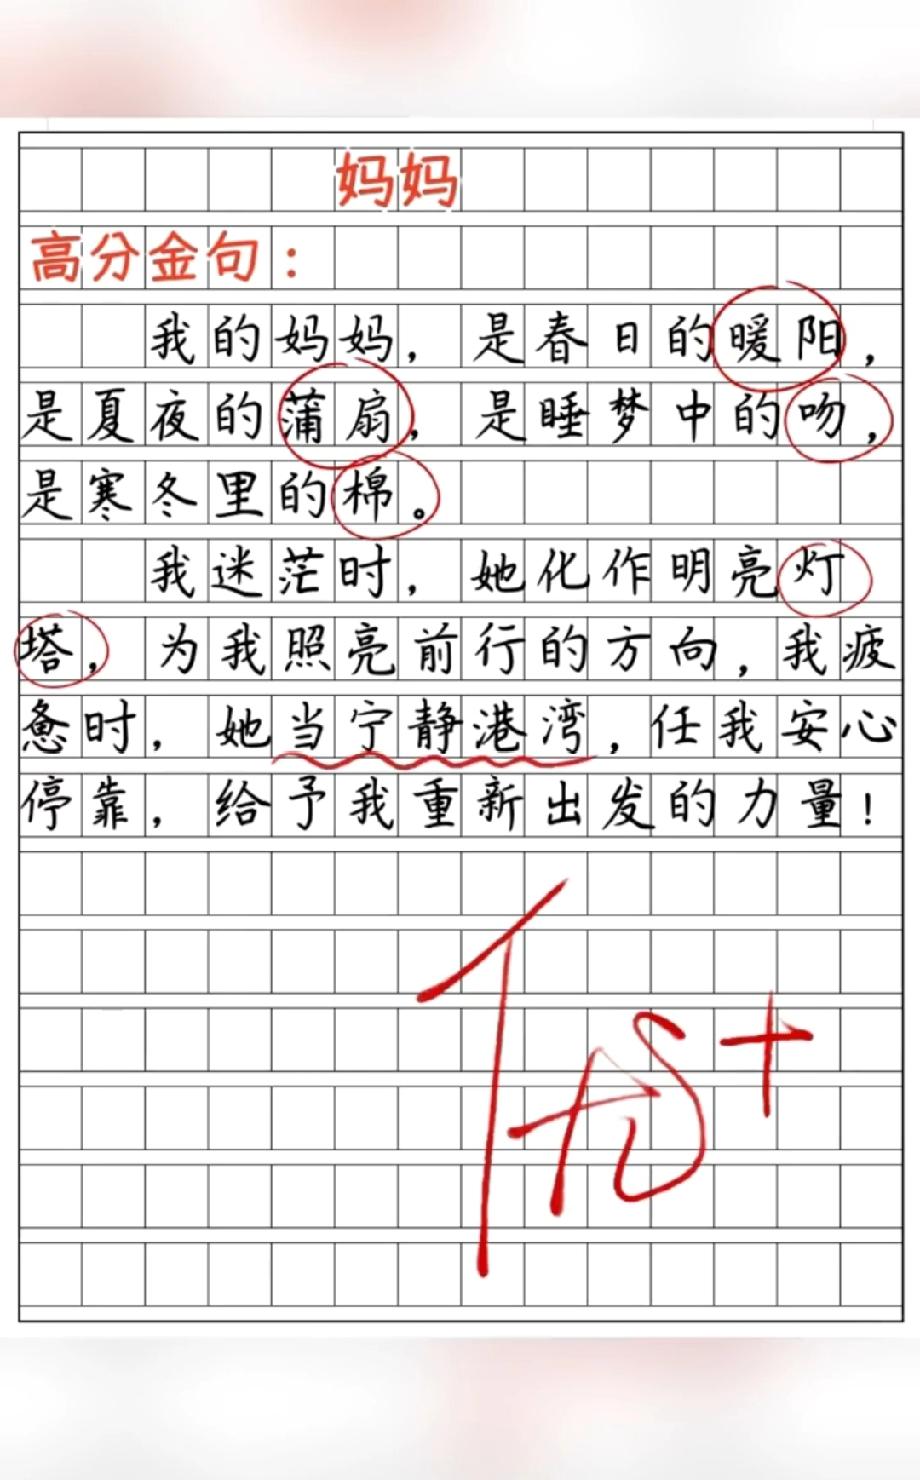 妈妈
高分金句：
我的妈妈，是春日的暖阳，
是夏夜的蒲扇，是睡梦中的吻，
是寒冬里的棉。
我迷茫时，她化作明亮灯
塔，为我照亮前行的方向，我疲
惫时，她当宁静港湾，任我安心
停靠，给予我重新出发的力量！